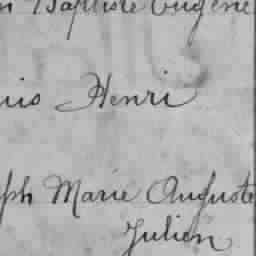 n Baptiste Eugène
uis Henri
ph Marie Auguste
Julien